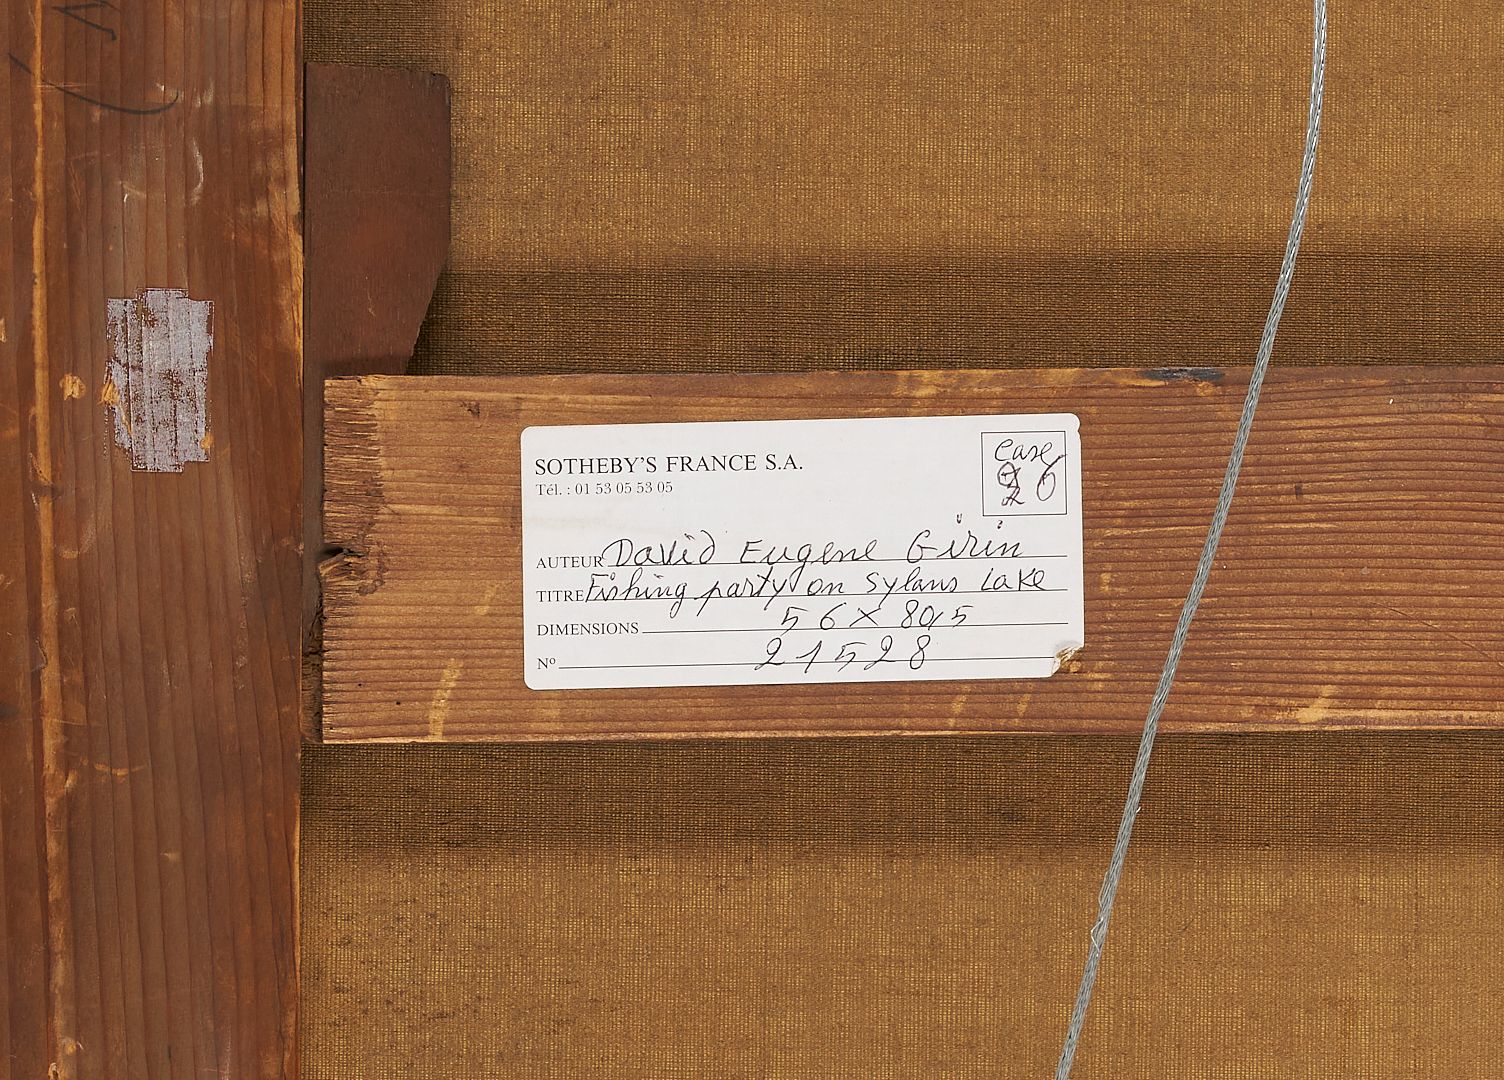 SOTHEBY'S FRANCE S.A.
Tél. : 01 53 05 53 05
Case
26
AUTEUR David Eugene Girin
TITRE Fishing party on Sylans Lake
DIMENSIONS 56 X 80,5
Nº 21528